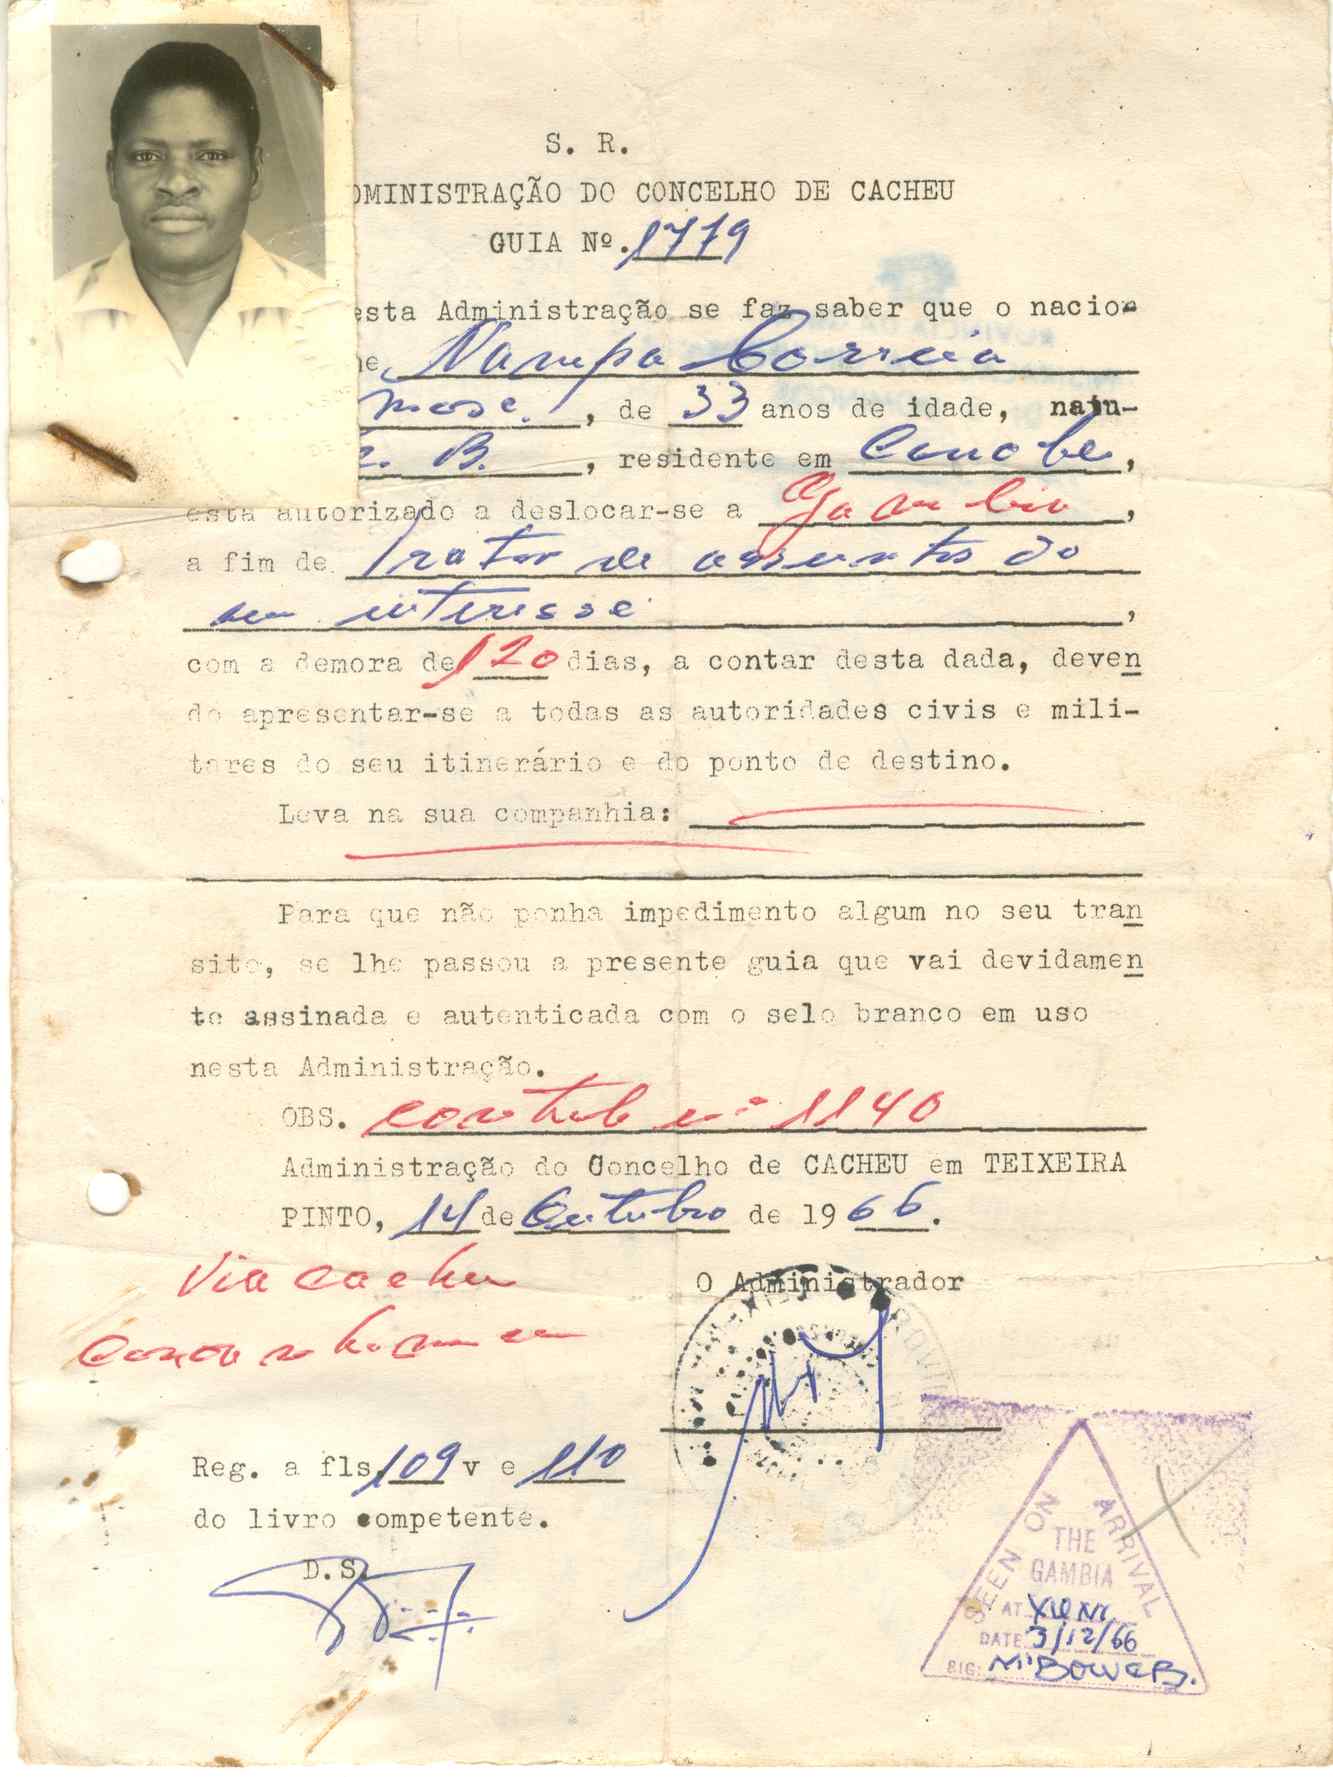 S. R.
DMINISTRAÇÃO DO CONCELHO DE CACHEU
GUIA Nº. 1779
esta Administração se faz saber que o nacio-
e Nampa Correia
, de 33 anos de idade, natu-
B. , residente em Canobe,
está autorizado a deslocar-se a Gambia,
a fim de tratar de assuntos do
seu interesse,
com a demora de 120 dias, a contar desta dada, deven
do apresentar-se a todas as autoridades civis e mili-
tares do seu itinerário e do ponto de destino.
Leva na sua companhia:
Para que não ponha impedimento algum no seu tran
sito, se lhe passou a presente guia que vai devidamen
te assinada e autenticada com o selo branco em uso
nesta Administração.
OBS. nº 1140
Administração do Concelho de CACHEU em TEIXEIRA
PINTO, 14 de Outubro de 1966.
Via Cacheu
O Administrador
Reg. a fls. 109 v e 110
do livro competente.
D.S.
SEEN ON ARRIVAL
THE
GAMBIA
AT
DATE 3/12/66
SIG: